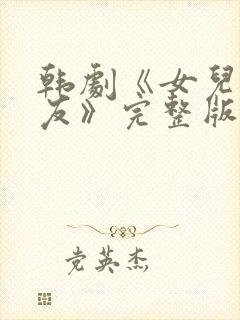 韩劇《女兒
友》完整版
党英杰